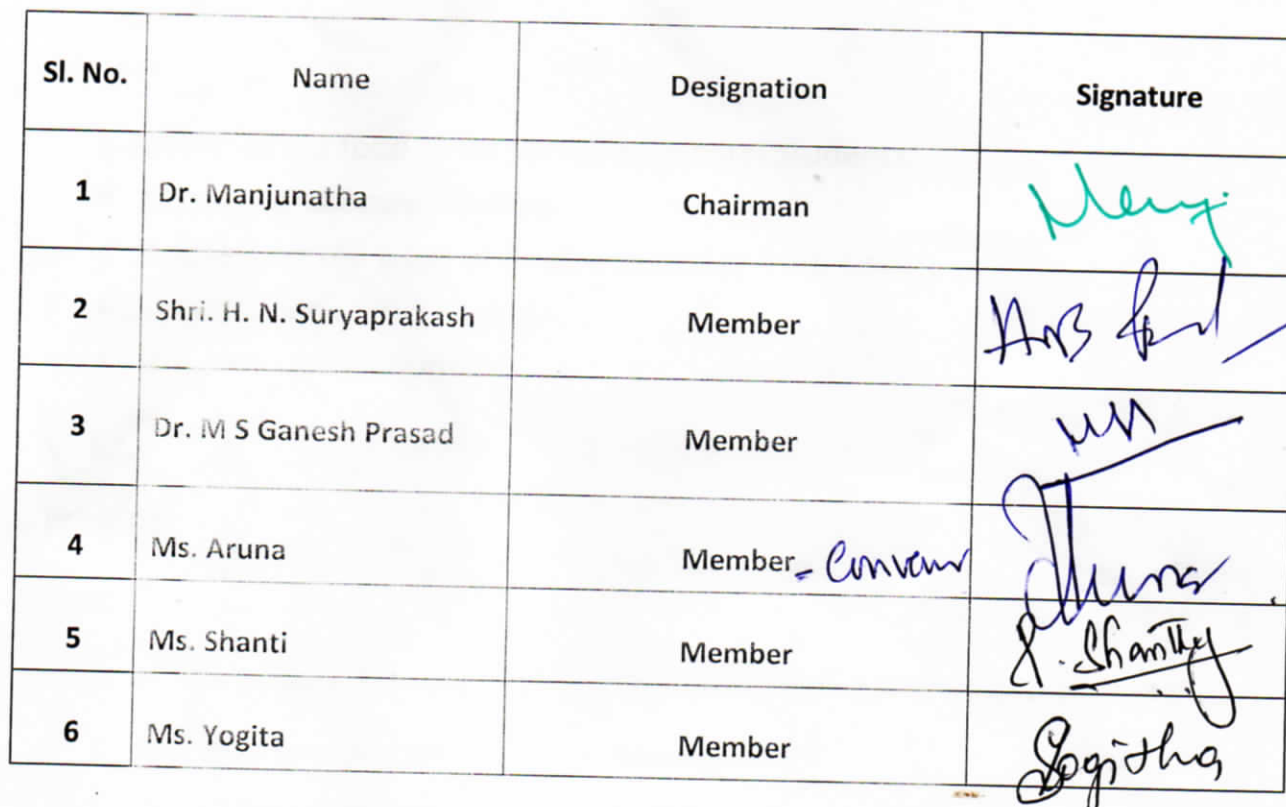 Sl. No. Name Designation Signature
1 Dr. Manjunatha Chairman
2 Shri. H. N. Suryaprakash Member
3 Dr. M S Ganesh Prasad Member
4 Ms. Aruna Member
5 Ms. Shanti Member S. Shanthy
6 Ms. Yogita Member Yogitha